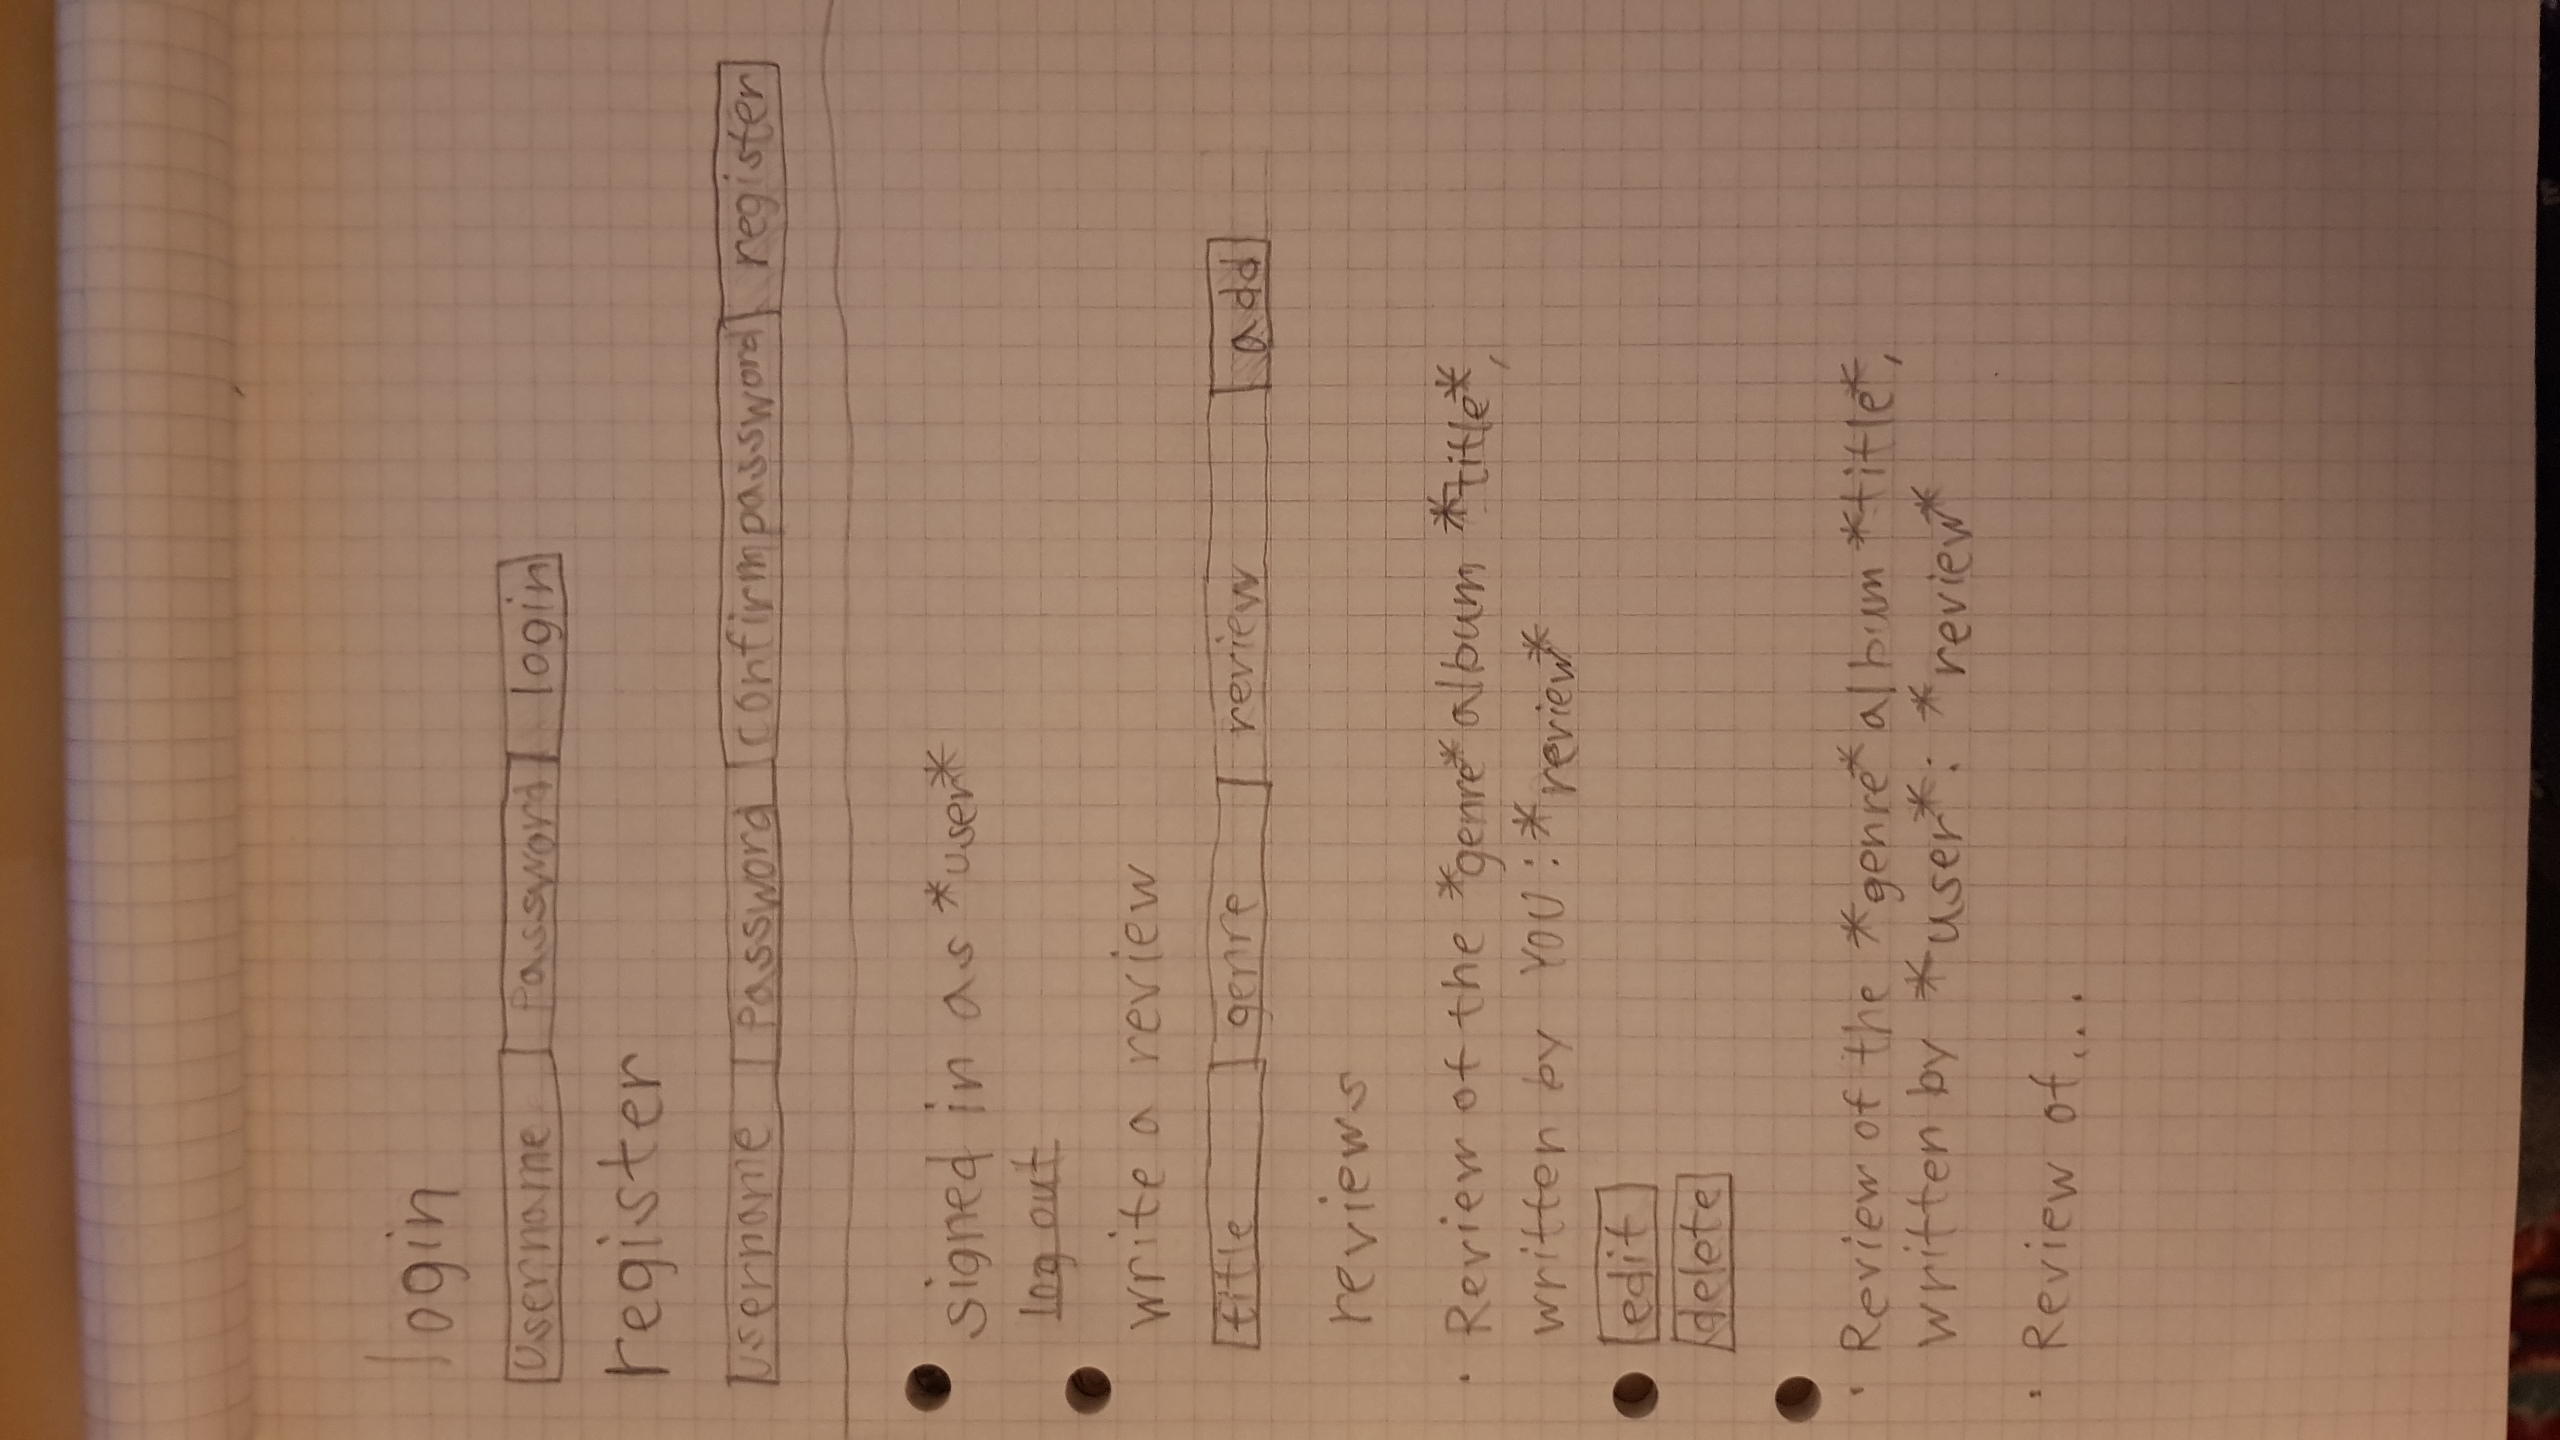 login
Username Password login
register
Username Password Confirm password register
signed in as *user*
log out
write a review
title genre review add
reviews
· Review of the *genre* album *title*,
written by YOU: *review*
edit
delete
· Review of the *genre* album *title*,
written by *user*: *review*
· Review of...